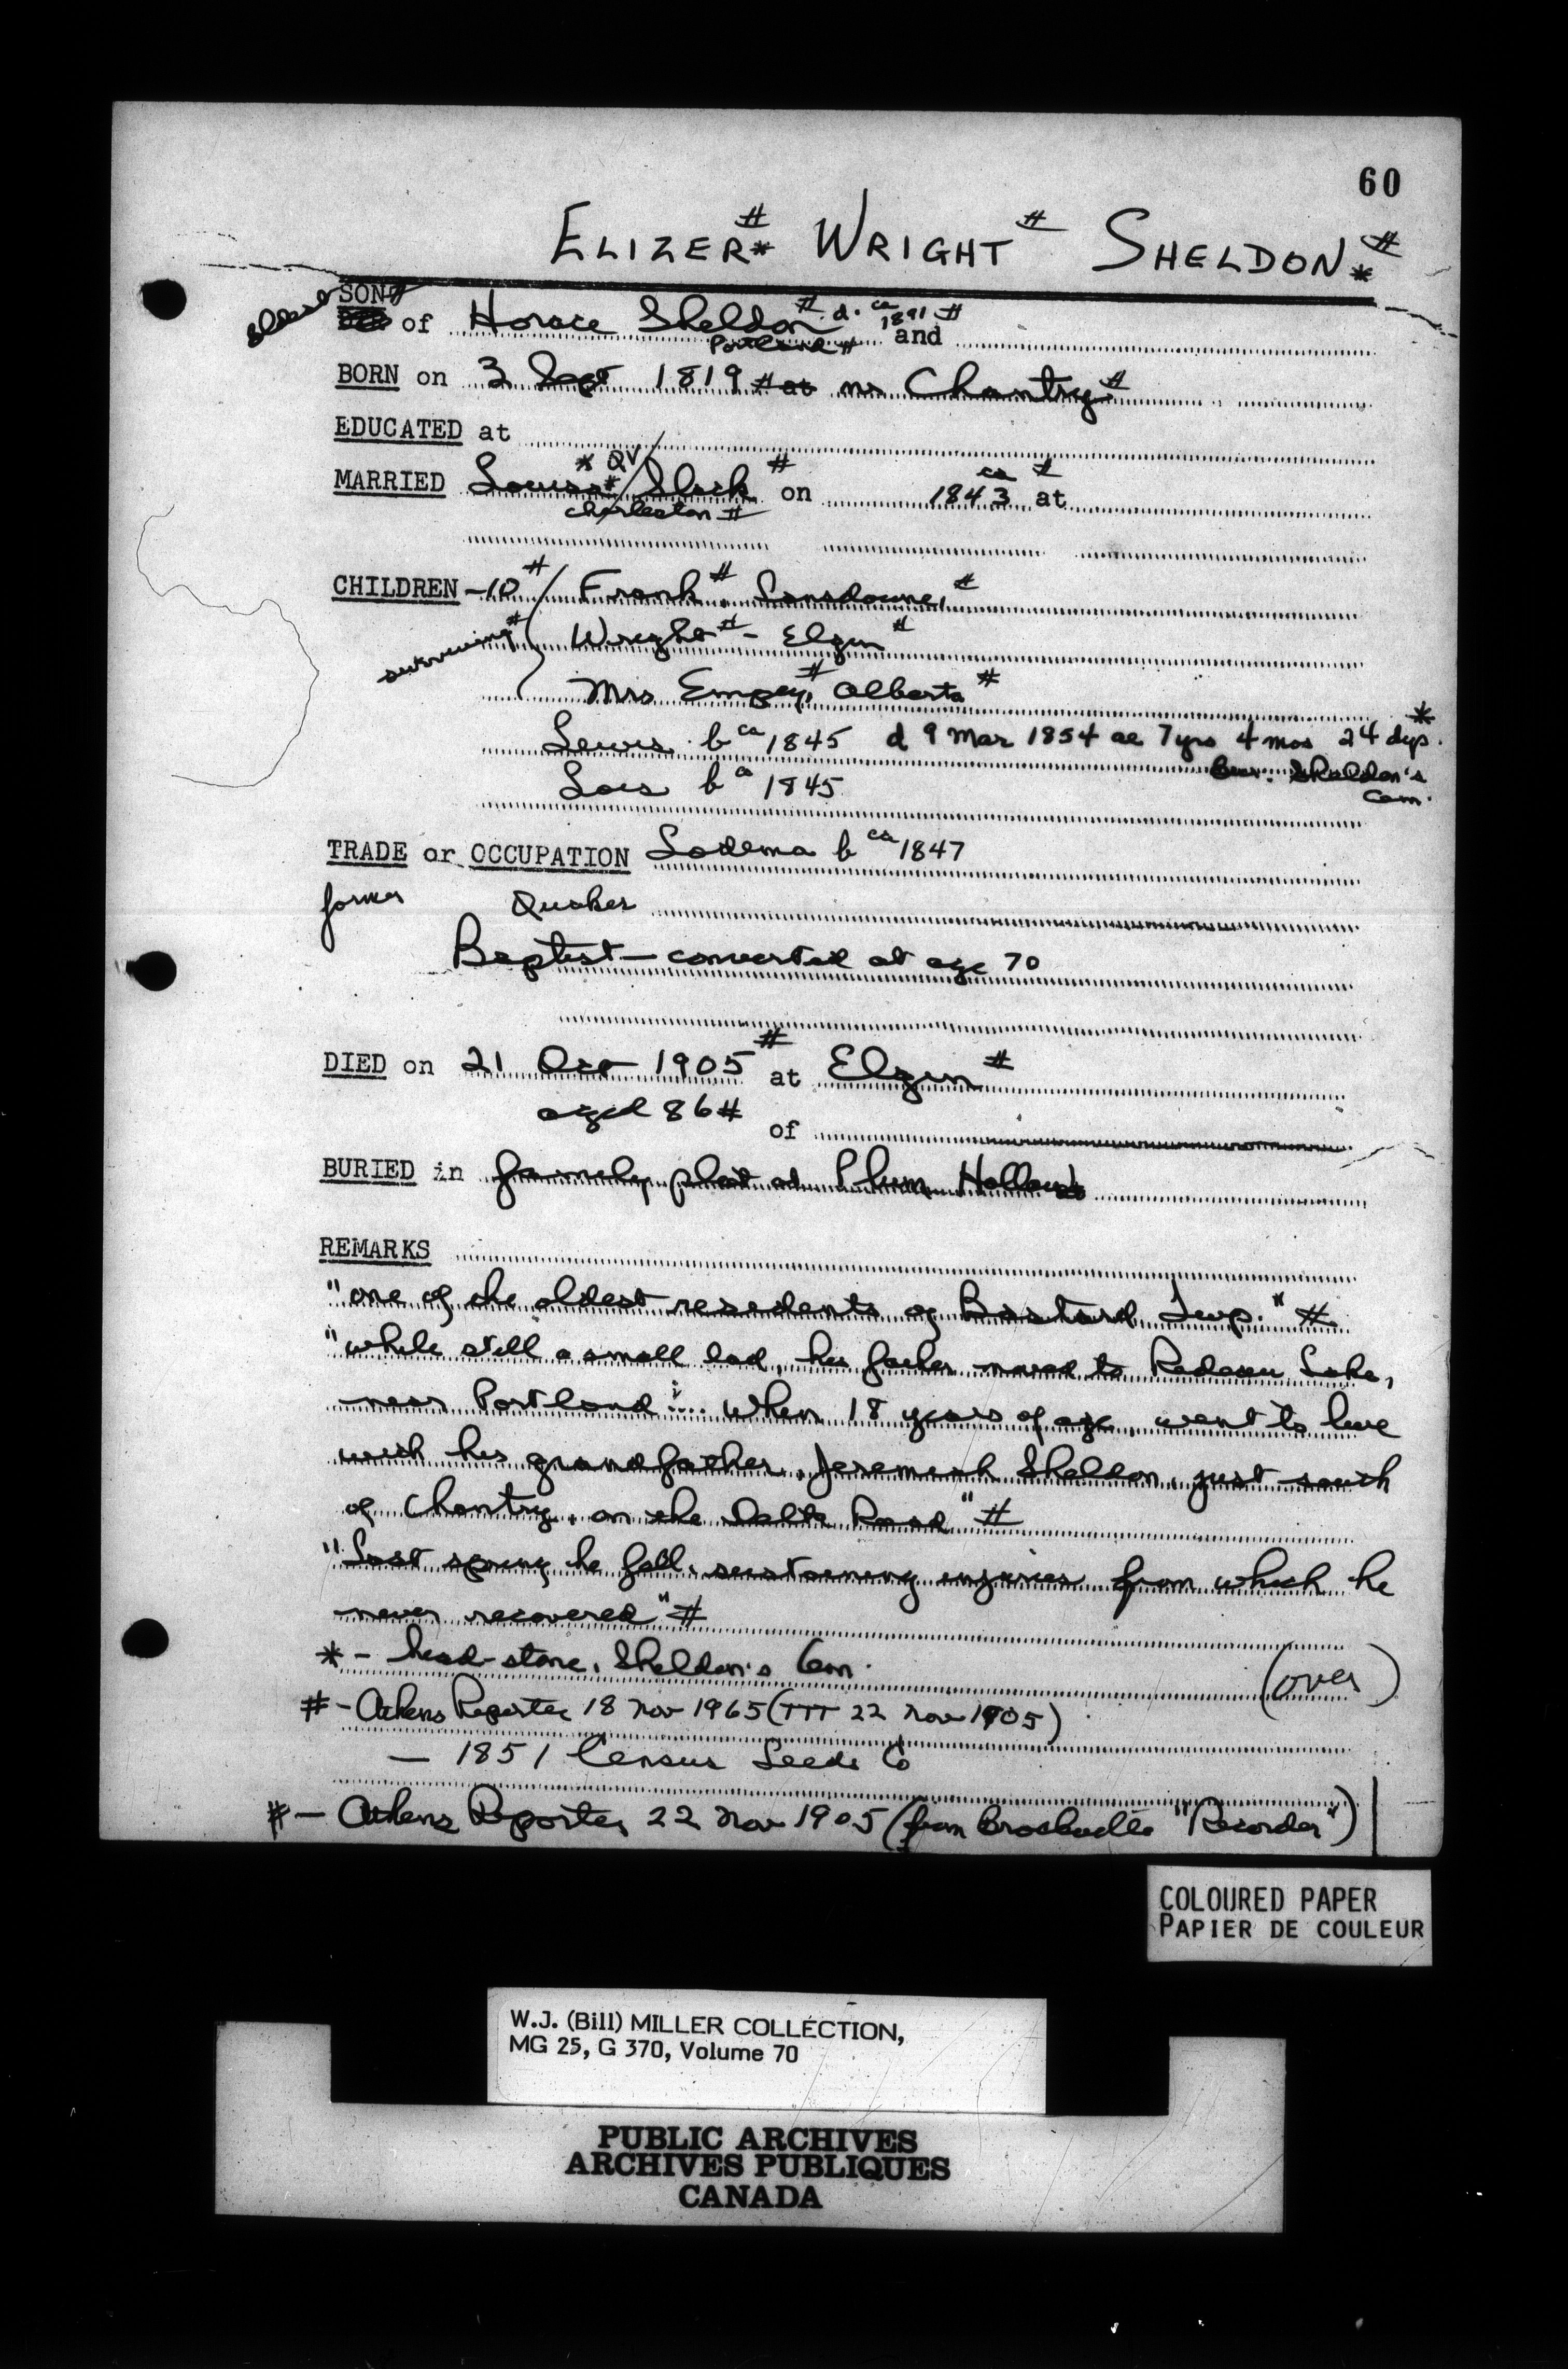 60
ELIZER#* WRIGHT# SHELDON#*
eldest SON# of Horace Sheldon# d. ca 1891 # and
Portland #
BORN on 3 Sept 1819 # at nr Chantry #
EDUCATED at
MARRIED Louisa*# QV Slack # on ca 1843 # at
Charleston #
CHILDREN - 10 # Frank #, Lansdowne, #
surviving # Wright # - Elgin #
Mrs Empey, # Alberta #
Lewis b ca 1845 d 9 Mar 1854 ae 7 yrs 4 mos 24 dys. *
bur. Sheldon's
Cem.
Lois b ca 1845
TRADE or OCCUPATION Lodema b ca 1847
farmer Quaker
Baptist - converted at age 70
DIED on 21 Oct 1905 # at Elgin #
aged 86 # of
BURIED in family plot at Plum Hollow
REMARKS
"one of the oldest residents of Bastard Twp." #
"while still a small lad, his father moved to Rideau Lake,
near Portland .... When 18 years of age, went to live
with his grandfather, Jeremiah Sheldon, just south
of Chantry, on the Delta Road" #
"Last spring he fell, sustaining injuries from which he
never recovered" #
* - head-stone, Sheldon's Cem.
(over)
# - Athens Reporter 18 Nov 1965 (TTT 22 Nov 1905)
- 1851 Census Leeds Co
# - Athens Reporter 22 Nov 1905 (from Brockville "Recorder")
COLOURED PAPER
PAPIER DE COULEUR
W.J. (Bill) MILLER COLLECTION,
MG 25, G 370, Volume 70
PUBLIC ARCHIVES
ARCHIVES PUBLIQUES
CANADA